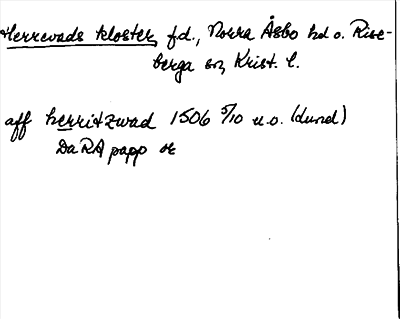 Herrevads kloster f.d., Norra Åsbo hd o. Rise-
berga sn, Krist. l.
aff herritzwad 1506 5/10 u.o. (Lund)
DaRA papp or